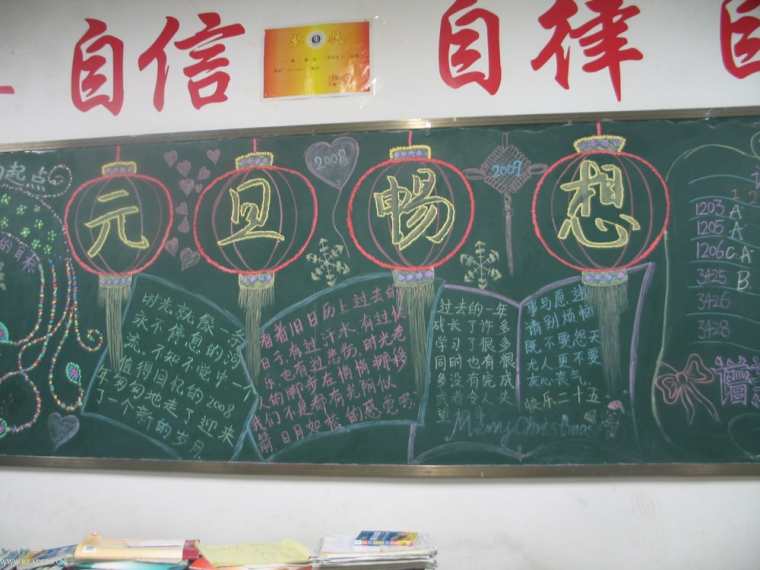 自信
自律
自
起点
元旦畅想
2008
2009
时光就像一条
永不停息的河
流,不知不觉中一个
值得回忆的2008
年匆匆地走了迎来
了一个新的岁月
看着旧日历上过去的
日子有过汗水,有过欢
乐,也有过悲伤,时光老
人的脚步在悄悄挪移
我们不是都有光阴似
箭日月如梭的感觉吗
过去的一年
成长了许多
学习了很多
同时也有很
多没有完成
事与愿违
请别烦恼
既不要怨天
尤人更不要
灰心丧气,
快乐二十五
Merry Christmas
1203 A
1205 A
1206 C A
3425 B
3426
3428